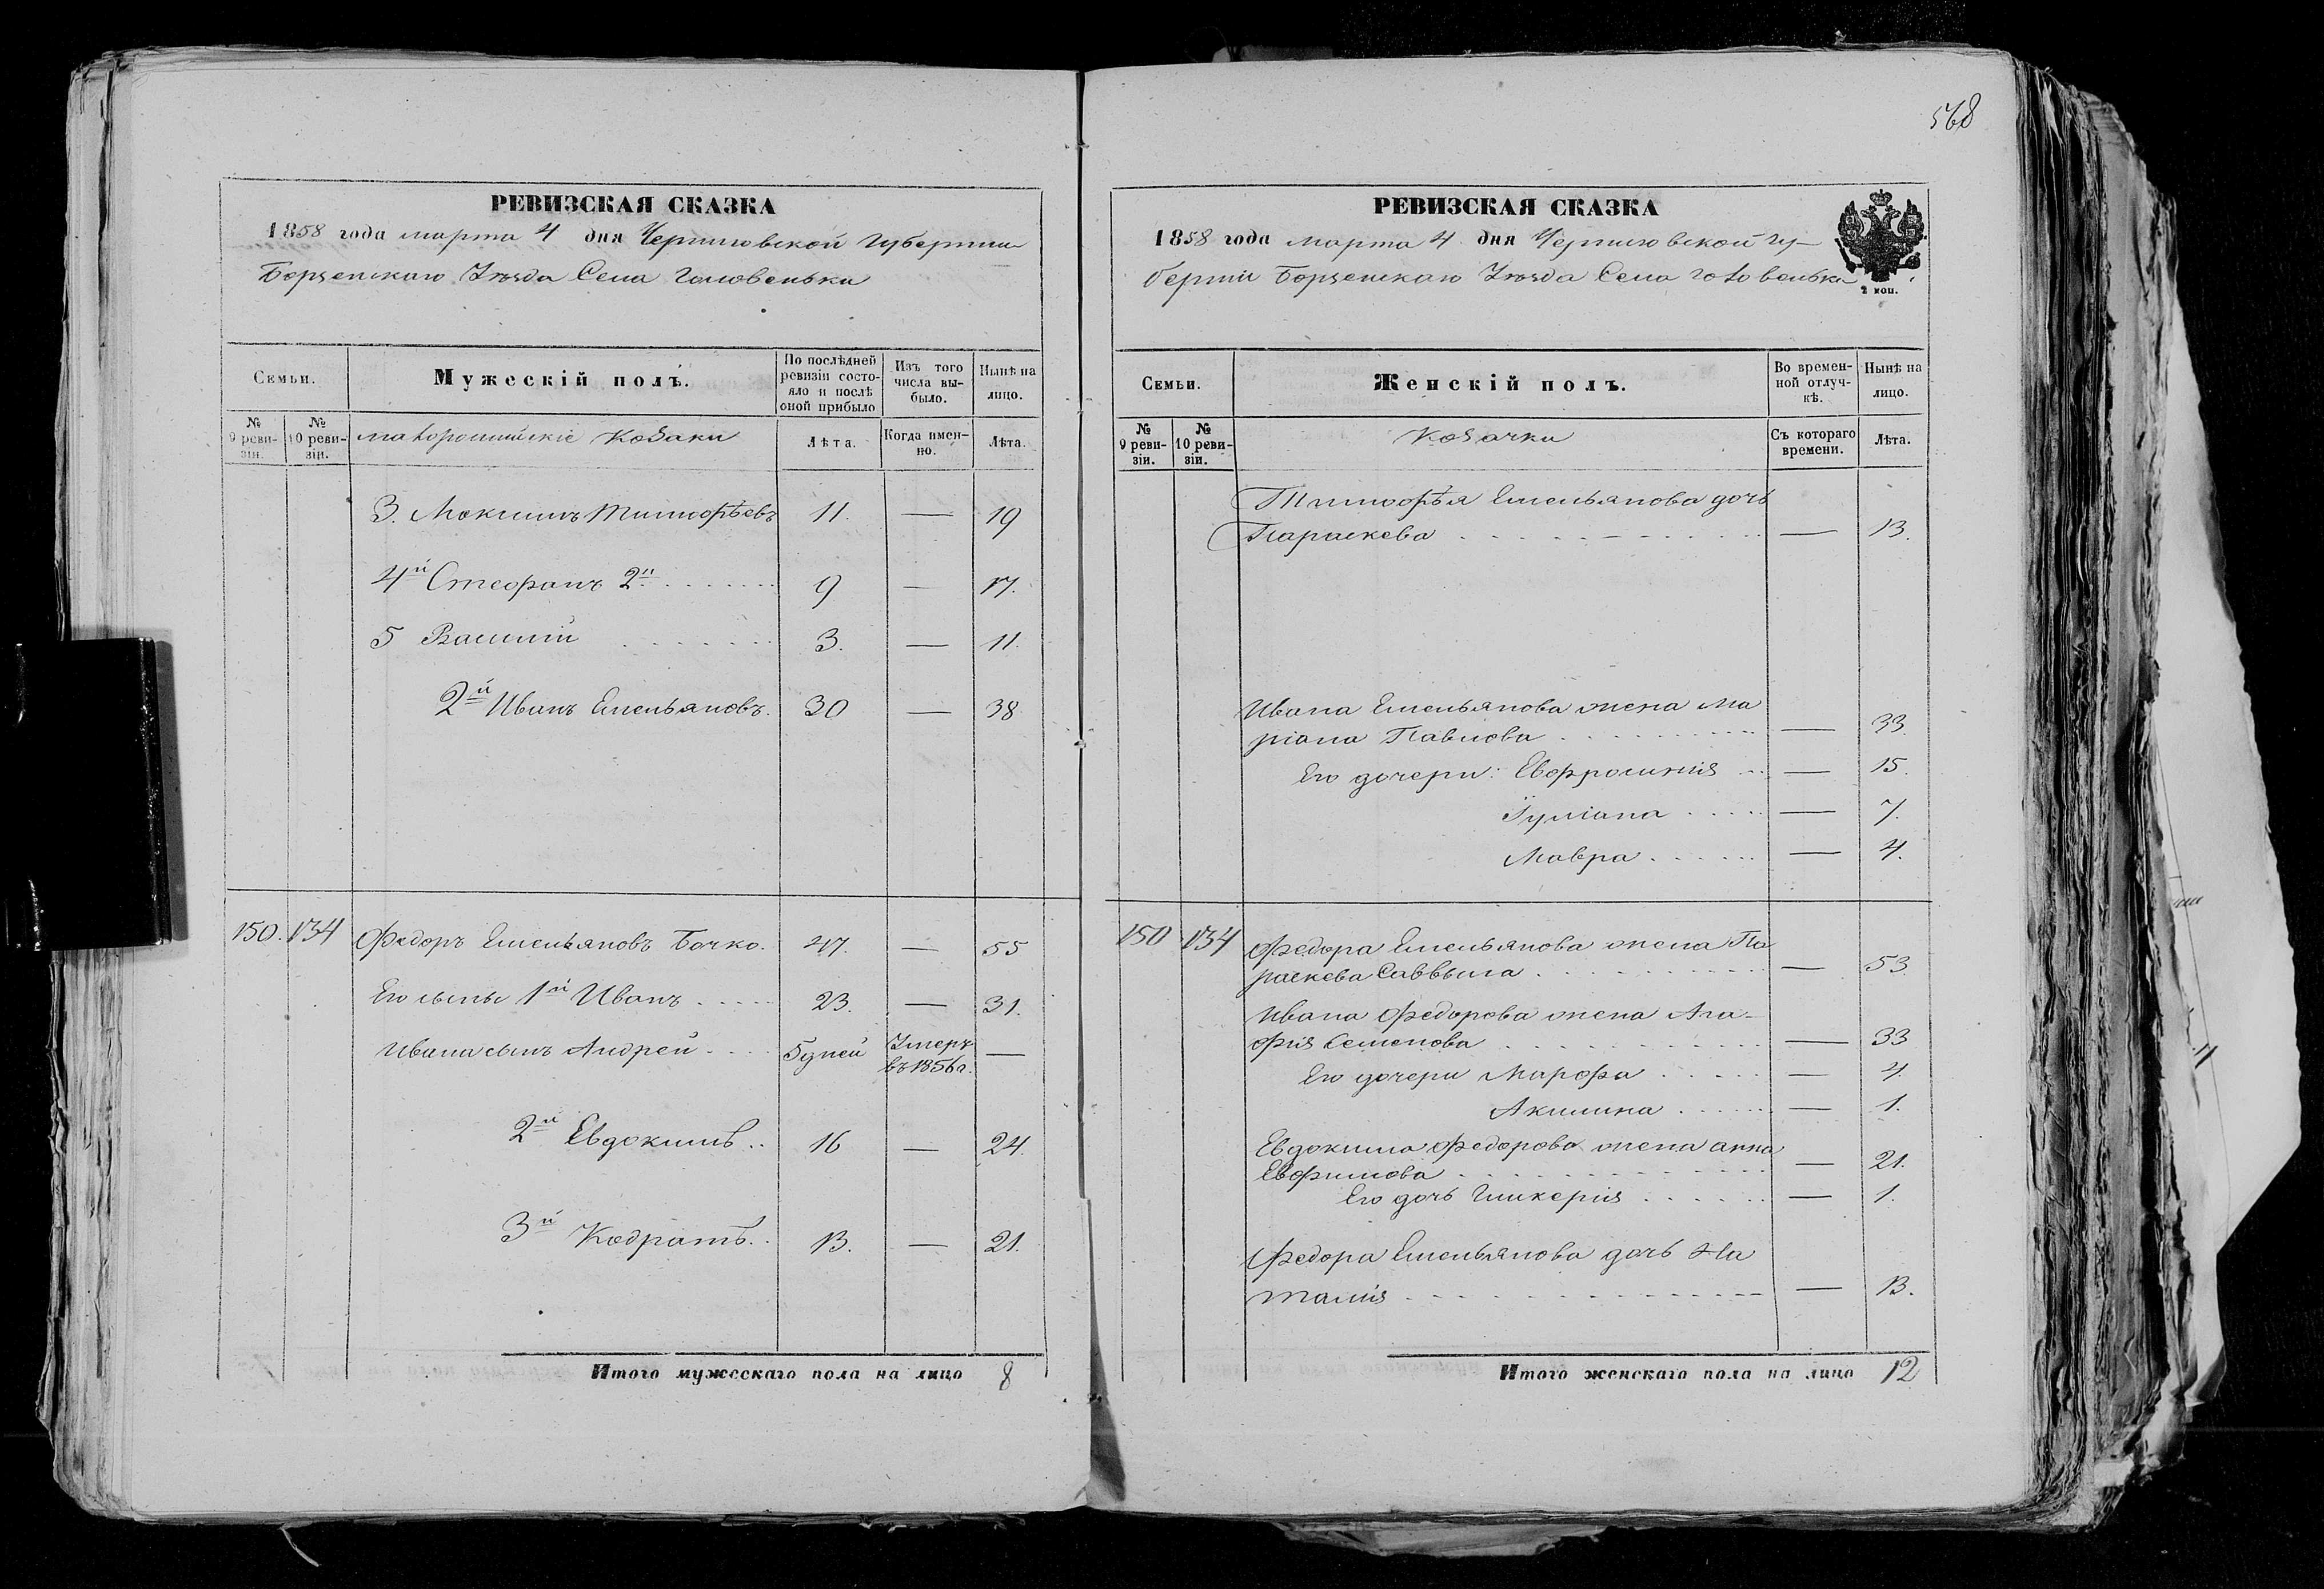 568
РЕВИЗСКАЯ СКАЗКА
1858 года марта 4 дня Черниговской Губернии
Борзенскаго Уѣзда Села Головеньки
Семьи.
Мужескій полъ.
По послѣдней ревизіи состояло и послѣ оной прибыло
Изъ того числа выбыло.
Нынѣ на лицо.
№ 9 ревизіи.
№ 10 ревизіи.
малоросийскіе Козаки
Лѣта.
Когда именно.
Лѣта.
3. Максимъ Тимофѣевъ 11. — 19
4й Стефанъ 2й 9 — 17.
5 Василій 3. — 11.
2й Иванъ Емельяновъ. 30 — 38
150. 134 Федоръ Емельяновъ Бочко. 47. — 55
Его сыны 1й Иванъ 23. — 31.
Ивана сынъ Андрей 5 дней Умеръ въ 1856 г. —
2й Евдокимъ 16 — 24.
3й Кодратъ 13. — 21.
Итого мужескаго пола на лицо 8
РЕВИЗСКАЯ СКАЗКА
1858 года марта 4 дня Черниговской Гу-
берніи Борзенскаго Уѣзда Села Головеньки
2 коп.
Семьи.
Женскій полъ.
Во временной отлучкѣ.
Нынѣ на лицо.
№ 9 ревизіи.
№ 10 ревизіи.
Козачки
Съ котораго времени.
Лѣта.
Тимофѣя Емельянова дочь
Параскева — 13.
Ивана Емельянова жена Ма
ріана Павлова — 33.
Его дочери: Евфросинія — 15.
Іуліана — 7.
Мавра — 4.
150 134 Федора Емельянова жена Па
раскева Саввына — 53.
Ивана Федорова жена Ага-
фія Семенова — 33
Его дочери Марфа — 4.
Акилина — 1.
Евдокима Федорова жена анна
Евфимова — 21.
Его дочь Гликерія — 1.
Федора Емельянова дочь На
талія — 13.
Итого женскаго пола на лицо 12